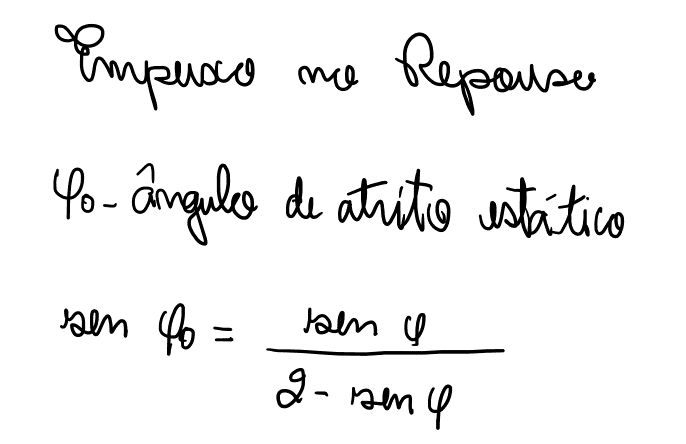 Empuxo no Repouso
φ₀ - ângulo de atrito estático
sen φ₀ = sen φ / 2 - sen φ